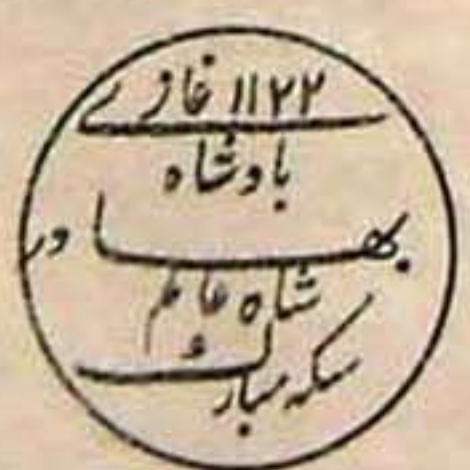 ۱۱۲۲ غازے
بادشاہ
بہادر
شاہ عالم
سکہ مبارک